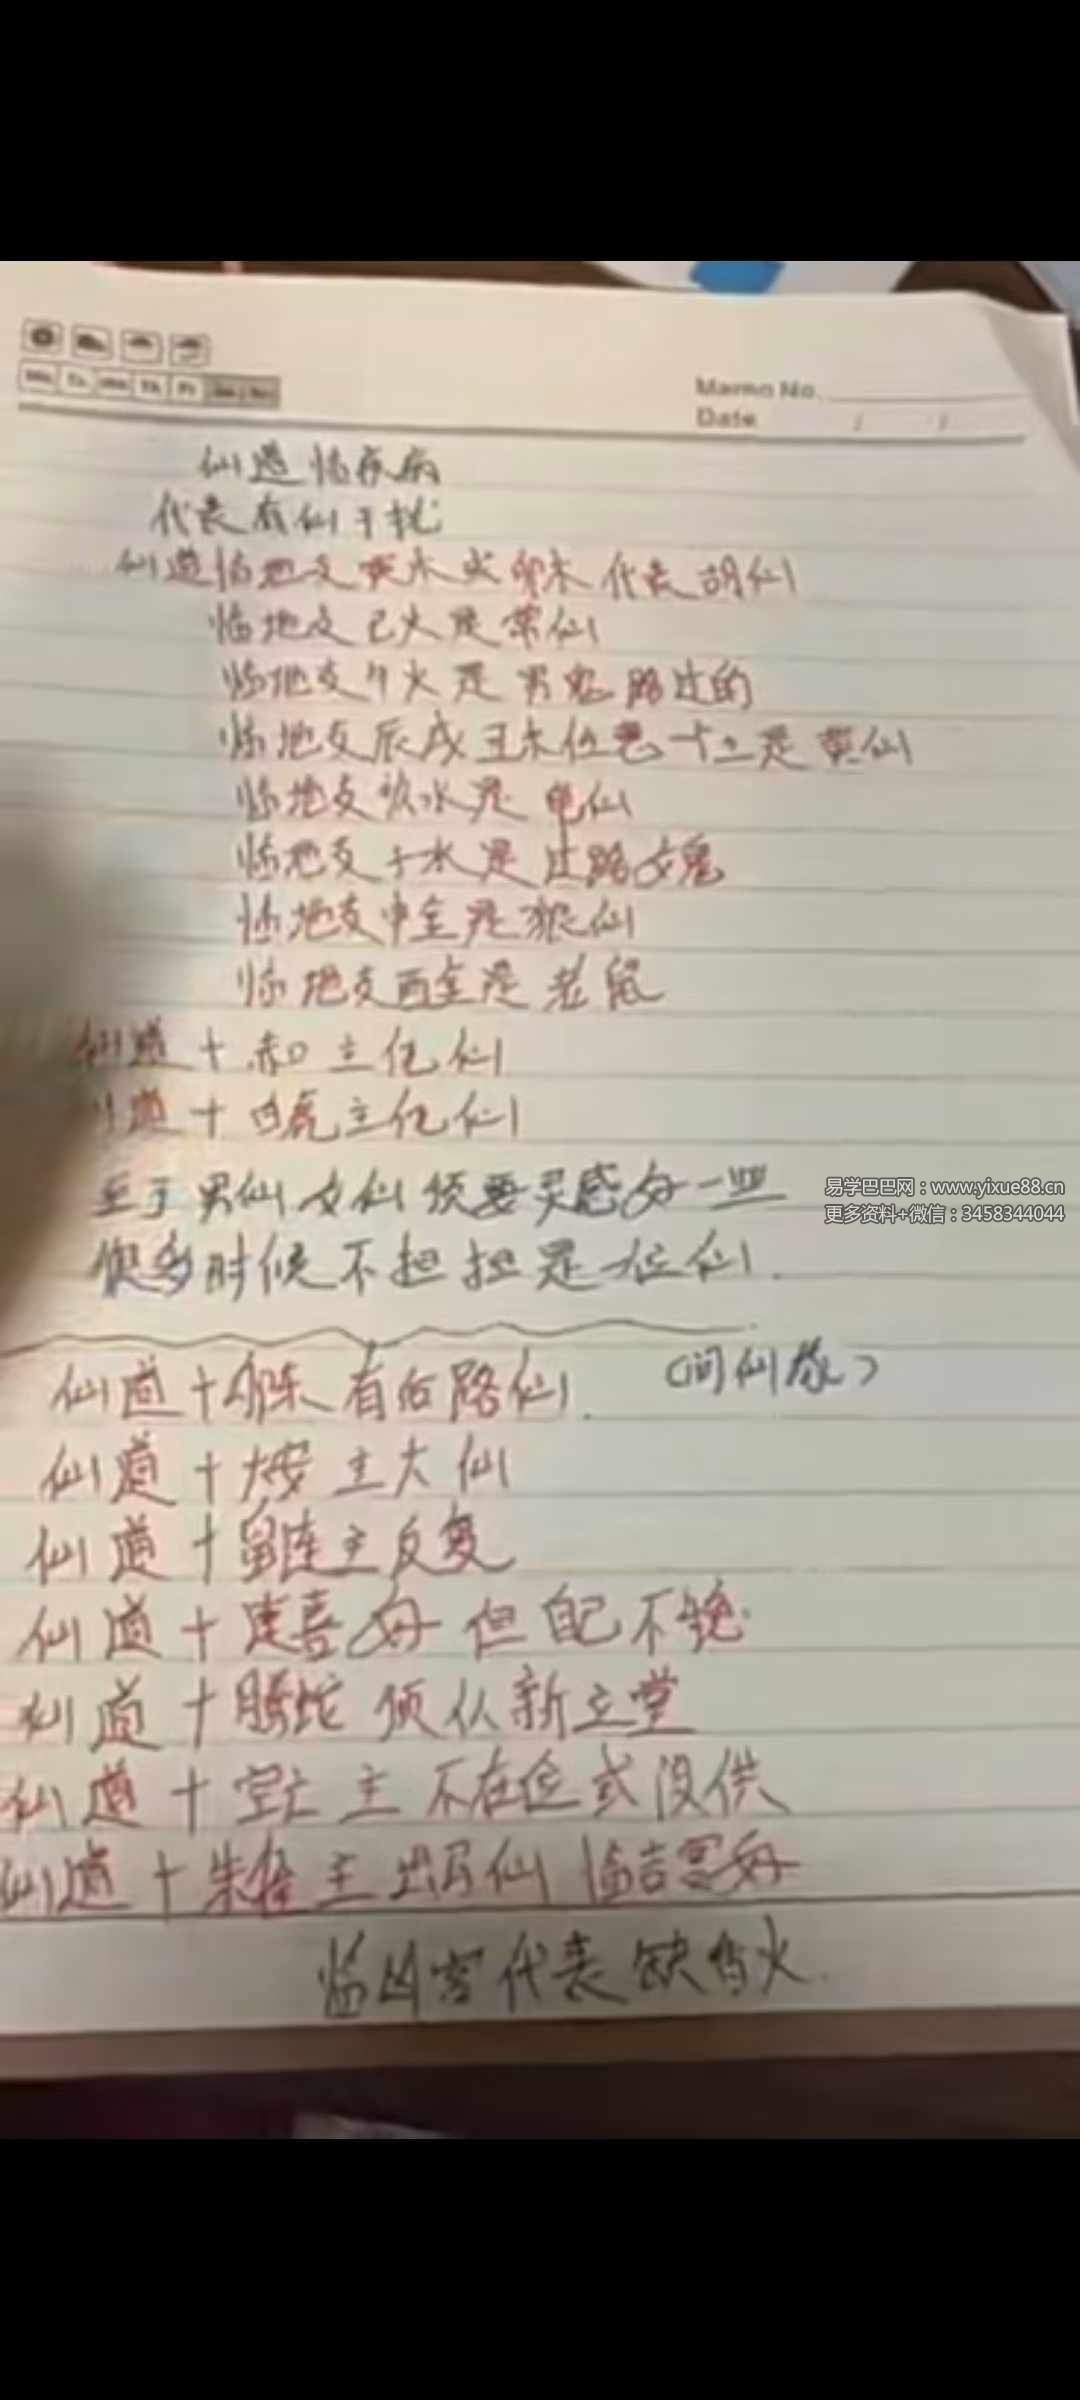 Memo No.
Date / /
仙道临疾病
代表有仙干扰
仙道临地支寅木或卯木代表胡仙
临地支巳火是常仙
临地支午火是男鬼路过的
临地支辰戌丑未 土是黄仙
临地支亥水是龟仙
临地支子水是过路女鬼
临地支申金是猴仙
临地支酉金是老鼠
仙道十赤口主 仙
仙道十白虎主 仙
至于男仙女仙须要灵感好一些
很多时候不担担是一位仙
易学巴巴网：www.yixue88.cn
更多资料+微信：3458344044
仙道十勾陈有后路仙.
(问仙家)
仙道十大安主大仙
仙道十留连主反复
仙道十速喜好但自己不
仙道十腾蛇须从新立堂
仙道十空亡主不在位或没供
仙道十朱雀主出马仙临吉宫好
临凶宫代表缺香火.